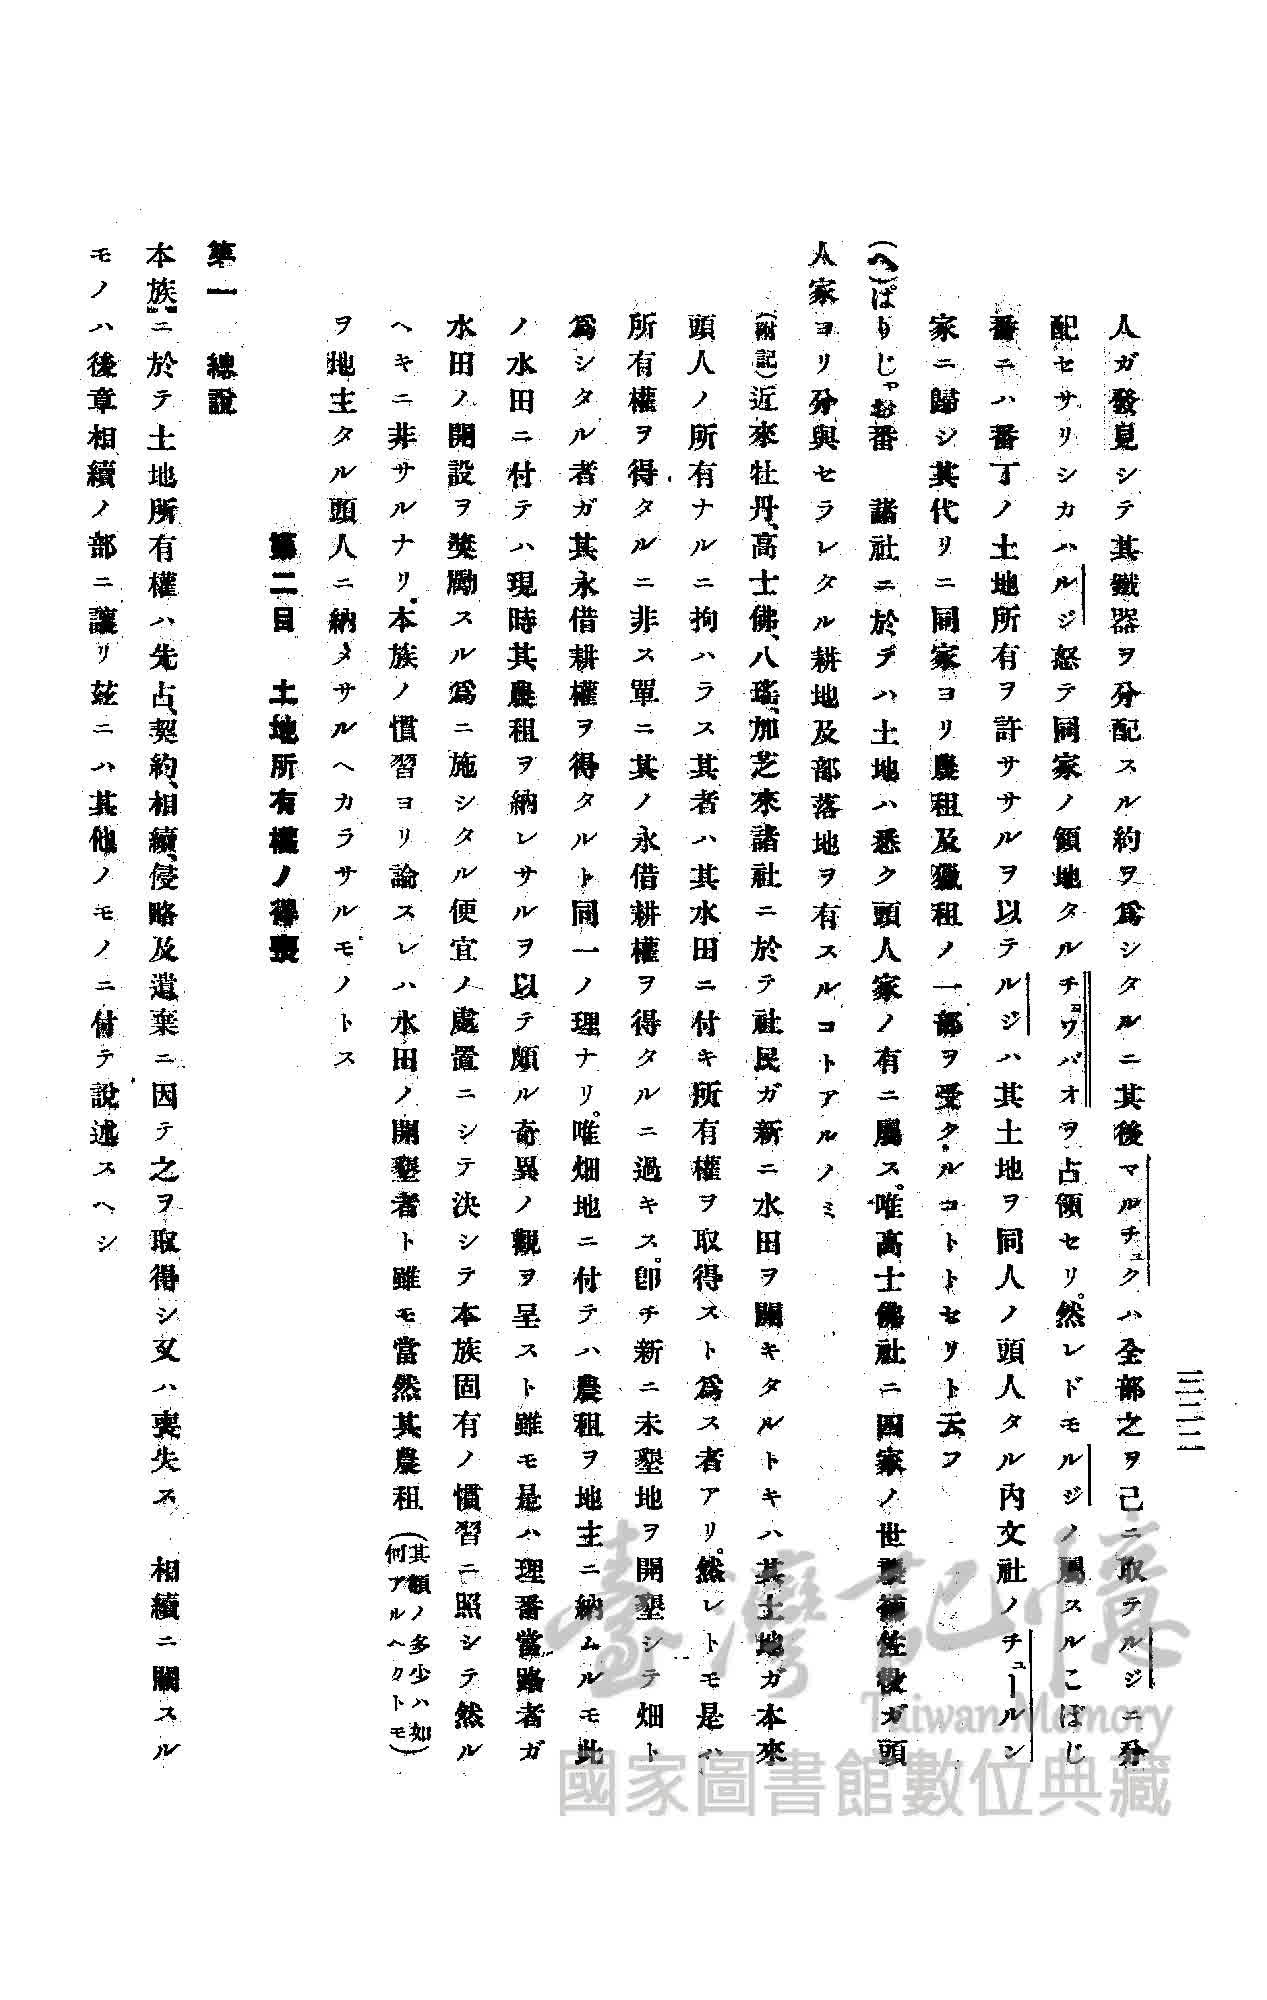 三二二
人ガ發見シテ其鐵器ヲ分配スル約ヲ爲シタルニ其後マルチュクハ全部之ヲ己ニ取テルジニ分
配セサリシカハルジ怒テ同家ノ領地タルチョワパオヲ占領セリ。然レドモルジノ屬スルこぼじ
番ニハ番丁ノ土地所有ヲ許ササルヲ以テルジハ其土地ヲ同人ノ頭人タル內文社ノチュールン
家ニ歸シ其代リニ同家ヨリ農租及獵租ノ一部ヲ受クルコトトセリト云フ
(へ)ぱりじゃお番　諸社ニ於デハ土地ハ悉ク頭人家ノ有ニ屬ス。唯高士佛社ニ四家ノ世襲補佐役ガ頭
人家ヨリ分與セラレタル耕地及部落地ヲ有スルコトアルノミ
(附記)近來牡丹、高士佛、八瑤、加芝來諸社ニ於テ社民ガ新ニ水田ヲ開キタルトキハ其土地ガ本來
頭人ノ所有ナルニ拘ハラス其者ハ其水田ニ付キ所有權ヲ取得ストト爲ス者アリ。然レトモ是ハ
所有權ヲ得タルニ非ス單ニ其ノ永借耕權ヲ得タルニ過キス。卽チ新ニ未墾地ヲ開墾シテ畑ト
爲シタル者ガ其永借耕權ヲ得タルト同一ノ理ナリ。唯畑地ニ付テハ農租ヲ地主ニ納ムルモ此
ノ水田ニ付テハ現時其農租ヲ納レサルヲ以テ頗ル奇異ノ觀ヲ呈スト雖モ是ハ理番當路者ガ
水田ノ開設ヲ奬勵スル爲ニ施シタル便宜ノ處置ニシテ決シテ本族固有ノ慣習ニ照シテ然ル
ヘキニ非サルナリ。本族ノ慣習ヨリ論スレハ水田ノ開墾者ト雖モ當然其農租(其額ノ多少ハ如何アルヘクトモ)
ヲ地主タル頭人ニ納メサルヘカラサルモノトス
第二目　土地所有權ノ得喪
第一　總說
本族ニ於テ土地所有權ハ先占、契約、相續、侵略及遺棄ニ因テ之ヲ取得シ又ハ喪失ス　相續ニ關スル
モノハ後章相續ノ部ニ讓リ玆ニハ其他ノモノニ付テ說述スヘシ
臺灣記憶
Taiwan Memory
國家圖書館數位典藏